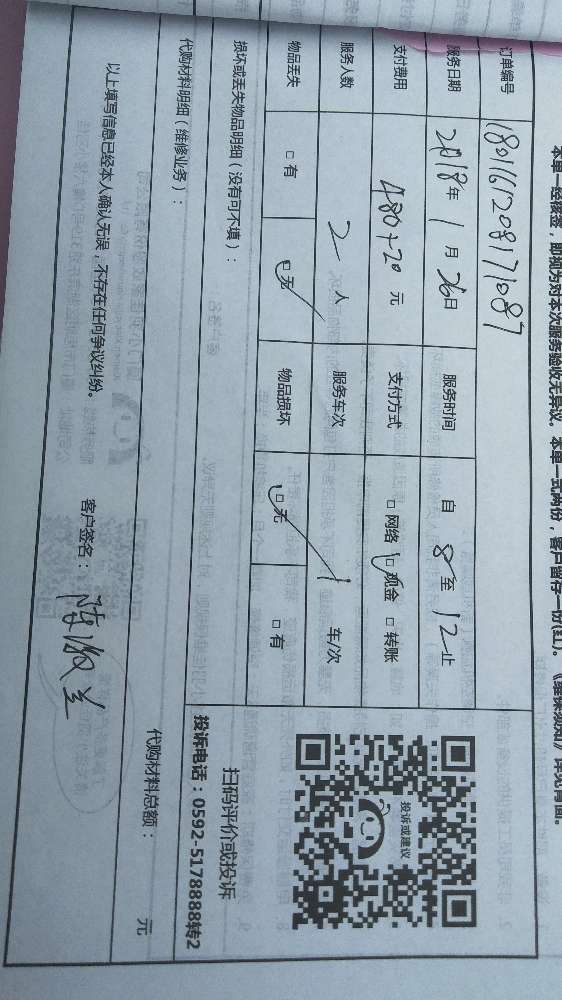 本单一经核签，即视为对本次服务验收无异议。本单一式两份，客户留存一份(红)。
订单编号 1801161208171087
服务日期 2018年1月26日 服务时间 自 8 至 12 止
支付费用 480+20 元 支付方式 □网络 □现金 □转账
服务人数 2 人 服务车次 1 车/次
物品丢失 □有 □无 物品损坏 □无 □有
损坏或丢失物品明细（没有可不填）：
投诉或建议
扫码评价或投诉
投诉电话：0592-5178888转2
代购材料明细（维修业务）：
代购材料总额： 元
以上填写信息已经本人确认无误，不存在任何争议纠纷。
客户签名：